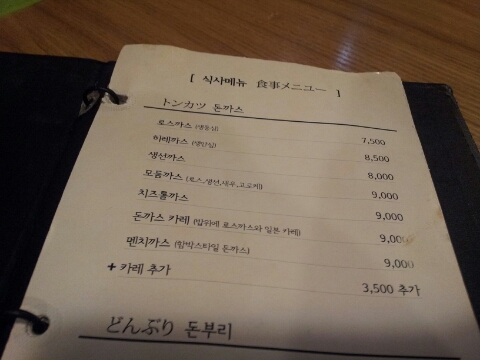 [ 식사메뉴 食事メニュー ]
トンカツ 돈까스
로스까스 (생등심) 7,500
히레까스 (생안심) 8,500
생선까스 8,000
모듬까스 (로스,생선,새우,고로케) 9,000
치즈롤까스 9,000
돈까스 카레 (밥위에 로스까스와 일본 카레) 9,000
멘치까스 (함박스타일 돈까스) 9,000
+ 카레 추가 3,500 추가
どんぶり 돈부리